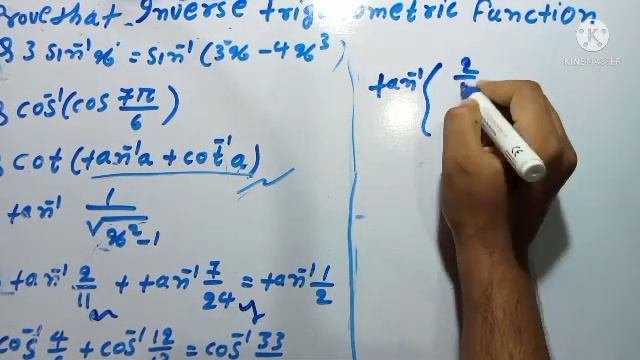 Prove that Inverse trigonometric Function
3 sin⁻¹x = sin⁻¹ (3x - 4x³)
cos⁻¹(cos 7π/6)
cot (tan⁻¹a + cot⁻¹a)
tan⁻¹ 1/√(x²-1)
tan⁻¹ 2/11 + tan⁻¹ 7/24 = tan⁻¹ 1/2
cos⁻¹ 4/ + cos⁻¹ 12/ = cos⁻¹ 33/
tan⁻¹ { 2/
KINEMASTER